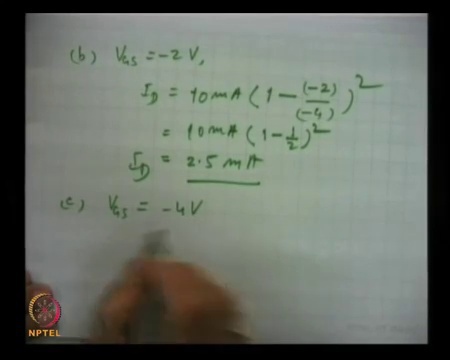 (b) V_GS = -2 V,
I_D = 10 mA (1 - (-2)/(-4))²
= 10 mA (1 - 1/2)²
I_D = 2.5 mA
(c) V_GS = -4 V
NPTEL